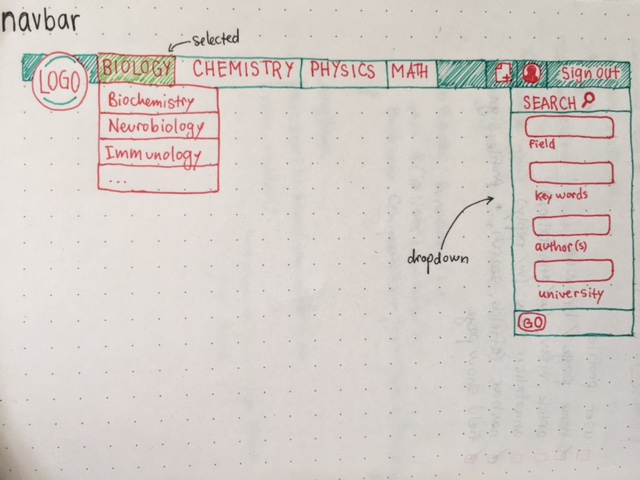 navbar
selected
LOGO
BIOLOGY CHEMISTRY PHYSICS MATH Sign out
Biochemistry
Neurobiology
Immunology
...
SEARCH
field
key words
author(s)
university
GO
dropdown